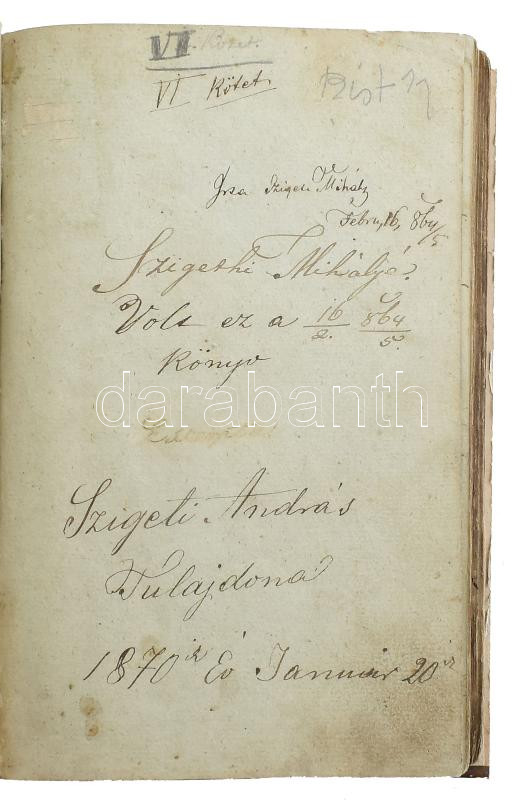 VI Kötet.
VI Kötet.
Irta Szigeti Mihály
Febru, 16, 864/5
Szigethi Mihályé
Volt ez a 16/2. 864/5.
Könyv
darabanth
Szigeti András
Tulajdona
1870ik Év Január 20ik